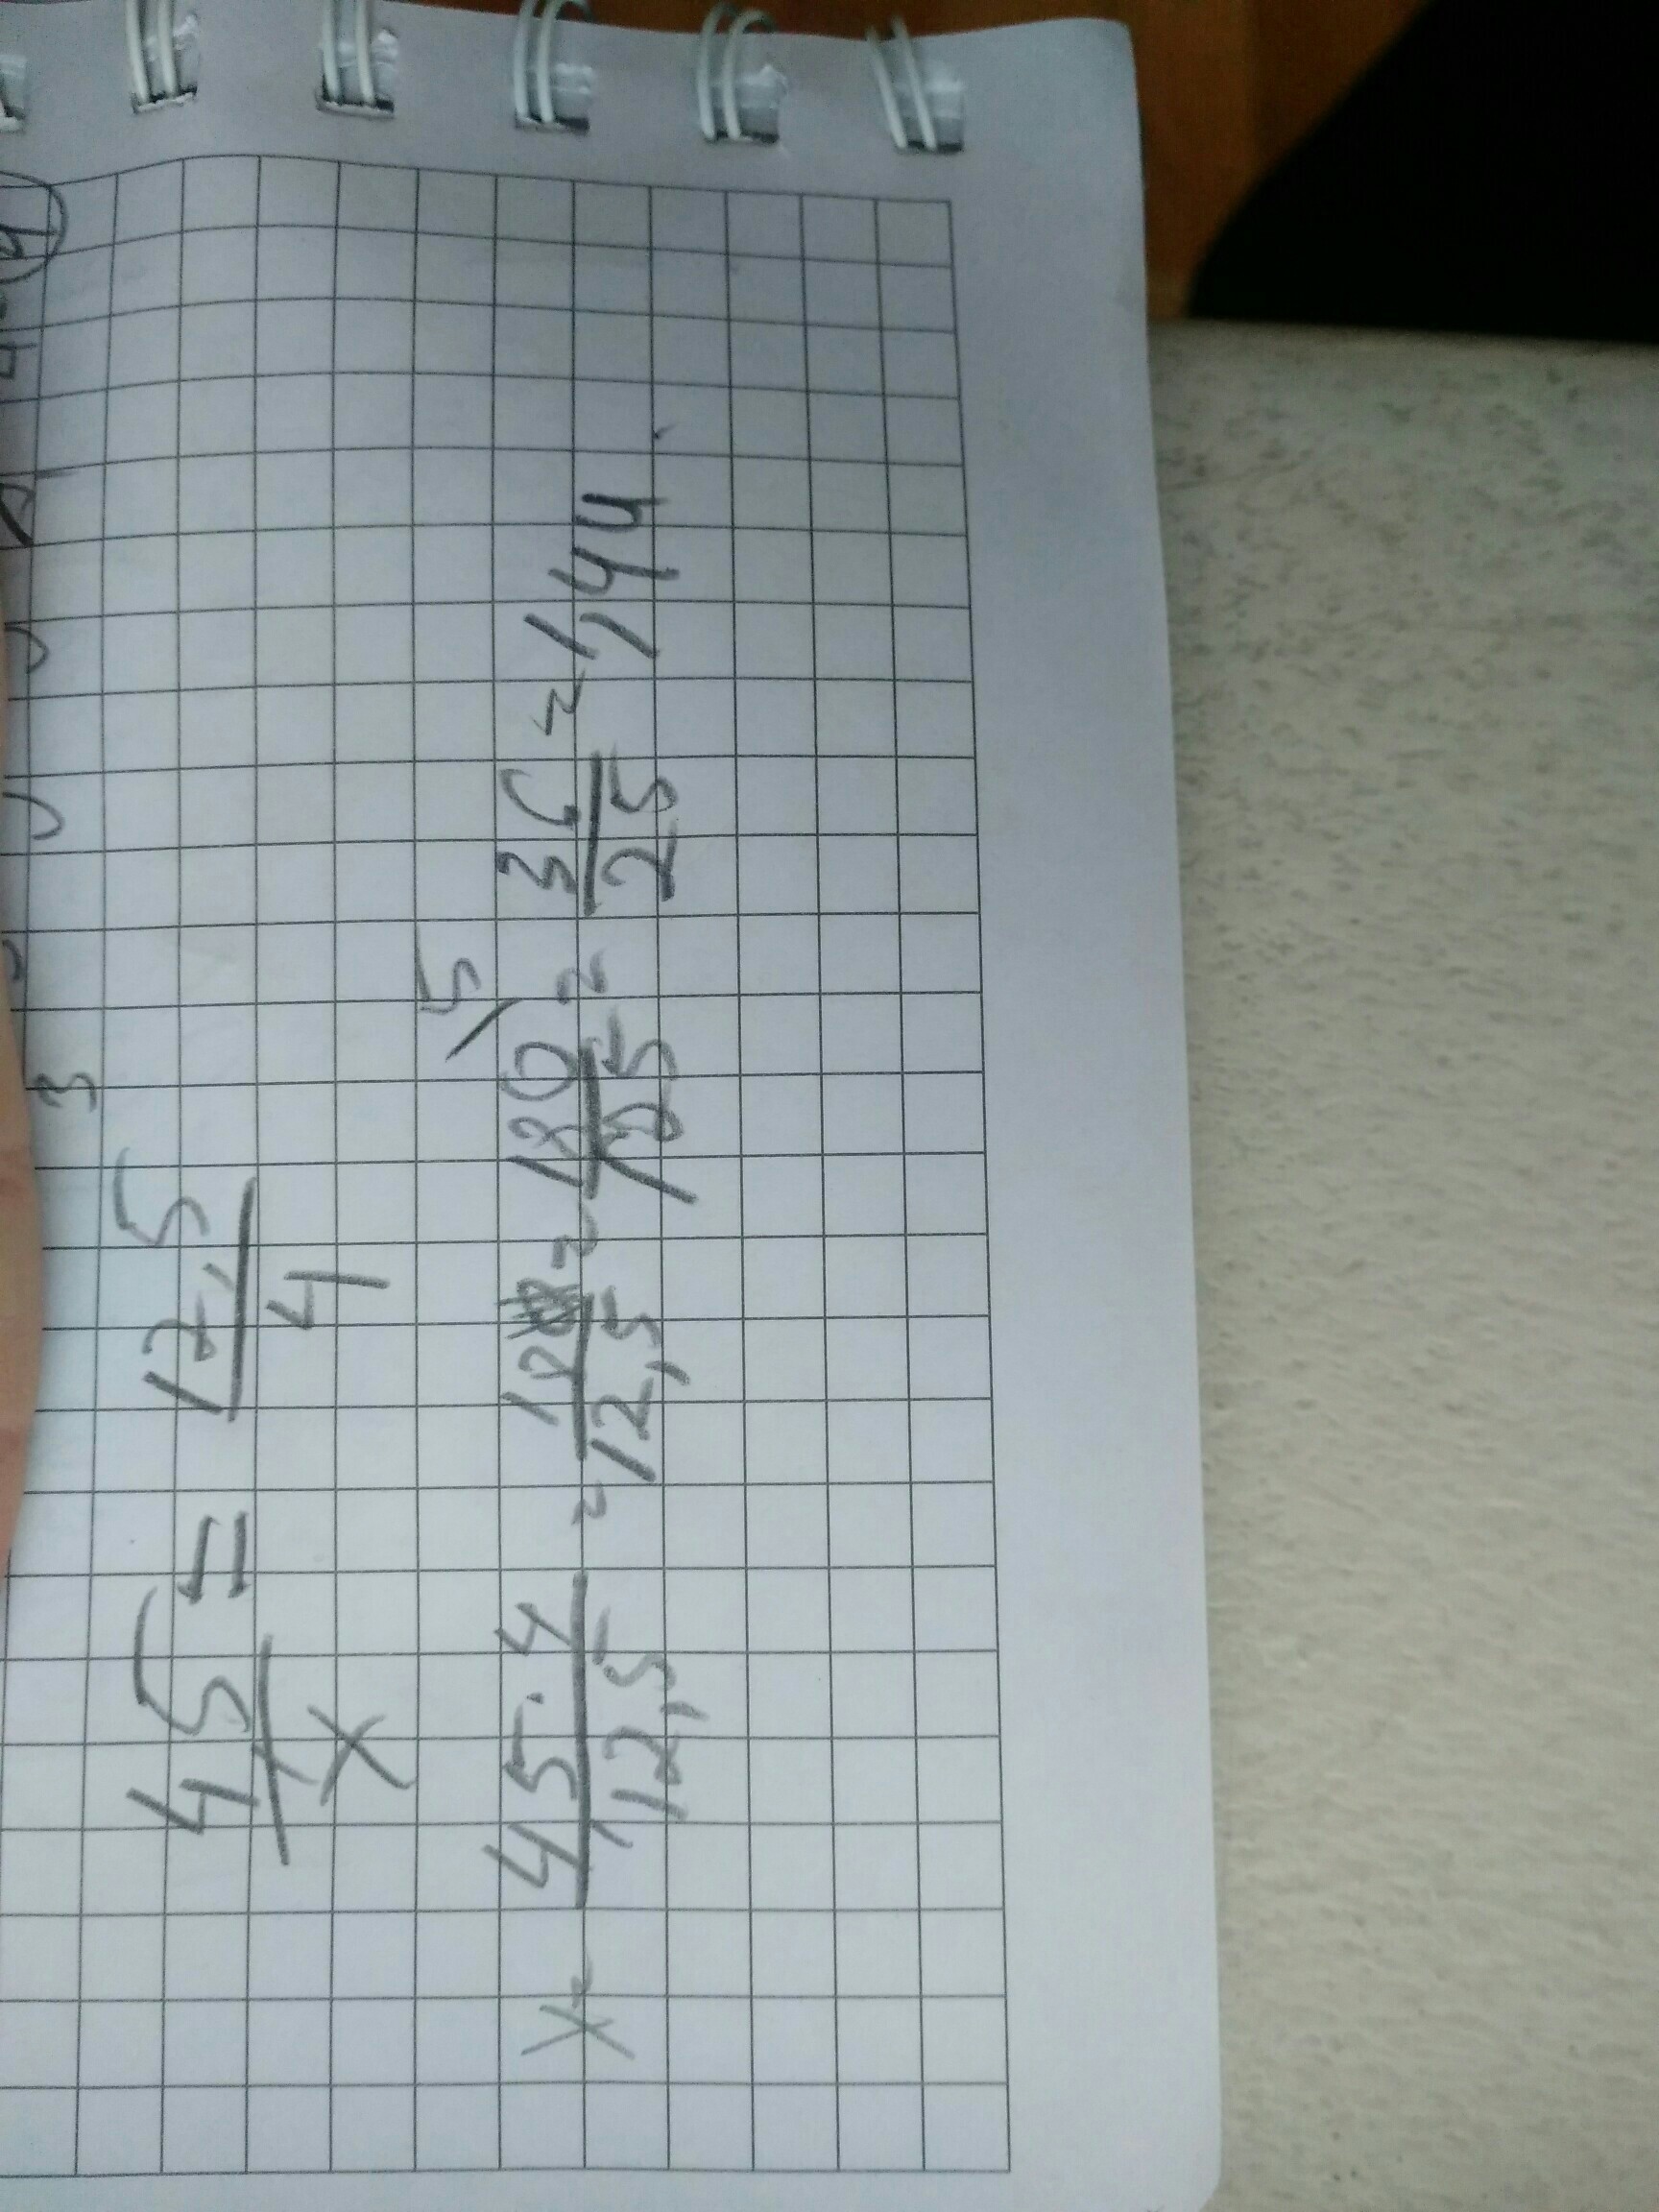 4,5/x = 12,5/4
x = 4,5·4/12,5 = 18/12,5 = 180/125 \5 = 36/25 = 1,44